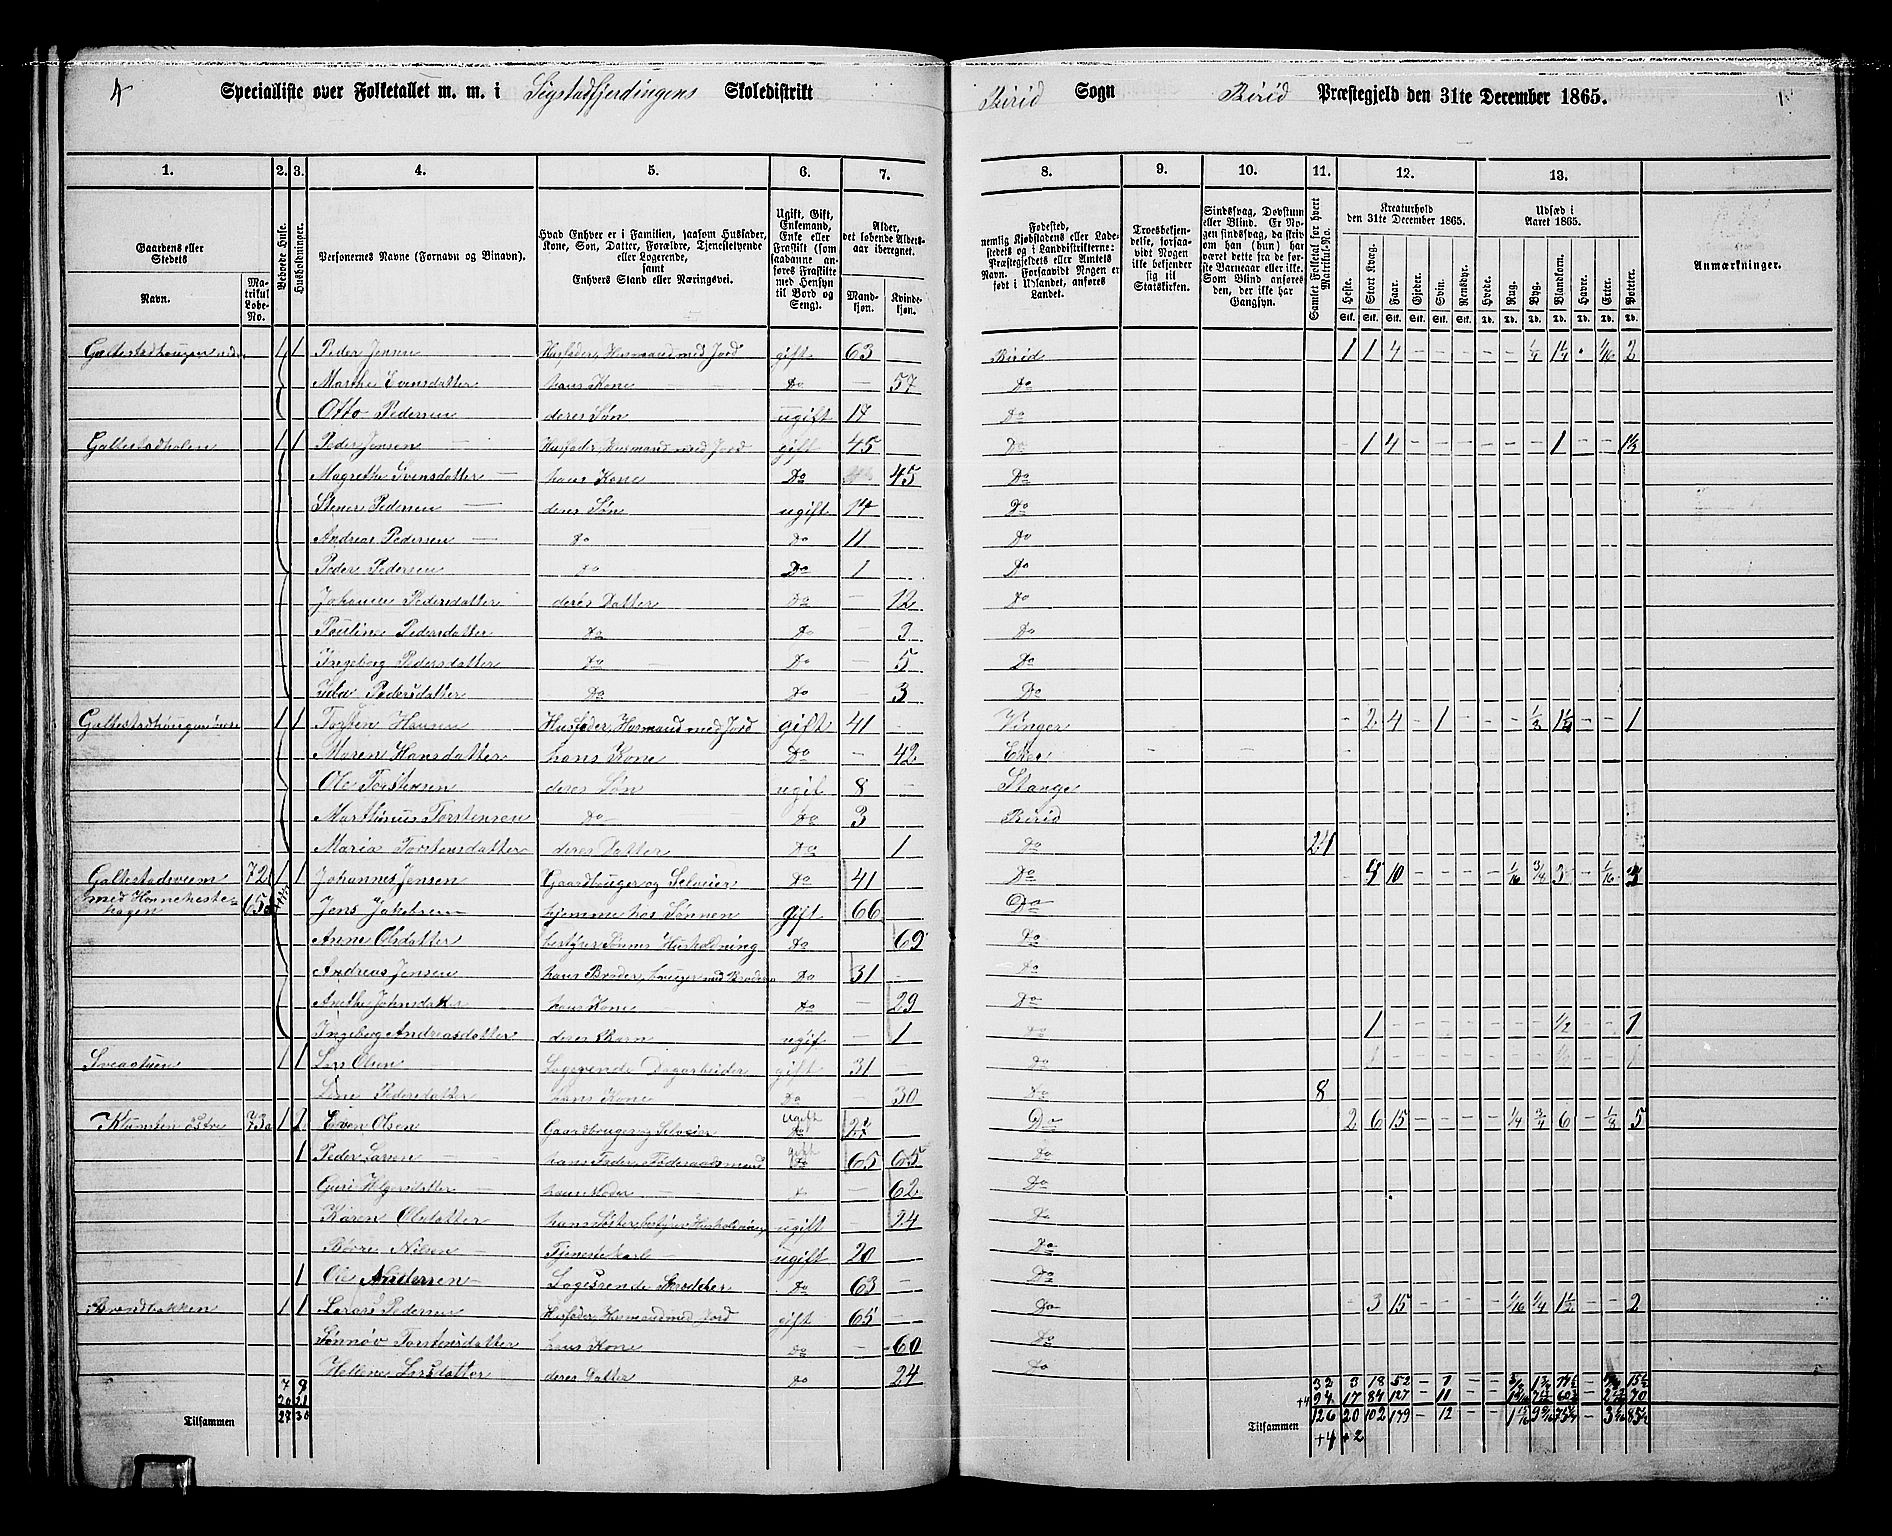 4
Specialliste over Folketallet m. m. i Sigstadfjerdingens Skoledistrikt
Birid Sogn Birid Præstegjeld den 31te December 1865.
1. 2. 3. 4. 5. 6. 7.
8. 9. 10. 11. 12. 13.
Gaardens eller Stedets
Navn. Matrikul Løbe-No.
Beboede Huse.
Husholdninger.
Personernes Navne (Fornavn og Binavn).
Hvad Enhver er i Familien, saasom Husfader, Kone, Søn, Datter, Forældre, Tjenestetyende eller Logerende, samt Enhvers Stand eller Næringsvei.
Ugift, Gift, Enkemand, Enke eller Fraskilt (som saadanne anføres Fraskilte med Hensyn til Bord og Seng).
Alder, det løbende Aldersaar iberegnet.
Mandkjøn. Kvindekjøn.
Fødested, nemlig Kjøbstadens eller Ladestedets og i Landdistrikterne: Præstegjeldets eller Amtets Navn. Forsaavidt Nogen er født i Udlandet, anføres Landet.
Troesbekjendelse, forsaavidt Nogen ikke bekjender sig til Statskirken.
Sindssvag, Døvstum eller Blind. Er Nogen sindssvag, da skrives om han (hun) har været dette fra de første Barneaar eller ikke. Som Blind anføres den, der ikke har Gangsyn.
Samlet Folketal for hvert Matrikul-No.
Kreaturhold den 31te December 1865.
Heste. Stort Kvæg. Faar. Gjeder. Svin. Rensdyr.
Udsæd i Aaret 1865.
Hvede. Rug. Byg. Blandkorn. Havre. Erter. Poteter.
Anmærkninger.
Galtestadhaugen 1 1 Peder Jensen Husfader, Husmand med Jord gift 63 Birid 1 1 4 – – – – – 1/4 1 1/4 1/16 2
Marthe Evensdatter hans Kone Do – 57 Do
Otto Pedersen deres Søn ugift 17 Do
Galtestadholen 1 1 Peder Jensen Husfader, Husmand med Jord gift 45 Do – 1 4 – – – – – – 1 – –
Magrethe Svensdatter hans Kone Do 45 Do
Stener Pedersen deres Søn ugift 14 Do
Andreas Pedersen Do Do 11 Do
Peder Pedersen Do Do 1 Do
Johanne Pedersdatter deres Datter Do – 12 Do
Pauline Pedersdatter Do Do – Do
Ingeborg Pedersdatter Do Do – 5 Do
Pedersdatter Do Do – 3 Do
Galtestadhaugen 1 1 Torsten Hansen Husfader, Husmand med Jord gift 41 Vinger – 2 4 – 1 – – – 1/3 – – 1
Maren Hansdatter hans Kone Do 42
Ole Torstensen deres Søn ugift 8 Stange
Marthinus Torstensen Do Do 3 Birid
Maria Torstensdatter deres Datter Do 1 Do
Galtestadsveen 72 1 1 Johannes Jensen Gaardbruger og Selveier Do 41 Do – 5 10 – – – – 1/16 3/4 3 – 1/16
med Hønnehestehagen 65 Jens Jakobsen hjemme hos Sønnen gift 66 Do
Anne Olsdatter bestyrer Sønnens Husholdning Do Do
Andreas Jensen hans Broder, Do 31 Do
Anethe Johnsdatter hans Kone Do – 29 Do
Ingeborg Andreasdatter deres Barn ugif – 1 Do 1 1/2 1
Sveastuen 1 1 Lars Olsen Logerende Dagarbeider gift 31 Do
Line Pedersdatter hans Kone Do – 30 Do 8
Klumten østre 73 1 Even Olsen Gaardbruger og Selveier ugift Do 2 6 15 – – – – 1/4 3/4 6 – 1/8 5
1 Peder Larsen hans Fader, Føderaadsmand gift 65 65 Do
Guri Helgersdatter hans Moder – 62 Do
Karen Olsdatter hans Søster, bestyrer Husholdningen ugift – 24 Do
Børre Nilsen Tjenestekarl ugift 20 Do
1 Ole Andersen Logerende Skrædder Do 63 Do
Brændbakken 1 1 Lars Pedersen Husfader, Husmand med Jord gift 65 Do – 3 15 – – – – 1/16 1/4 1 1/2 – – 2
Sønnøv Torstensdatter hans Kone Do – 60 Do
Hellene Larsdatter deres Datter Do 24 Do
7 9 32 3 18 52 – 1
20 21 +4 94 17 84 127 – 11
Tilsammen 27 30 Tilsammen 126 20 102 179 – 12
+4 +2